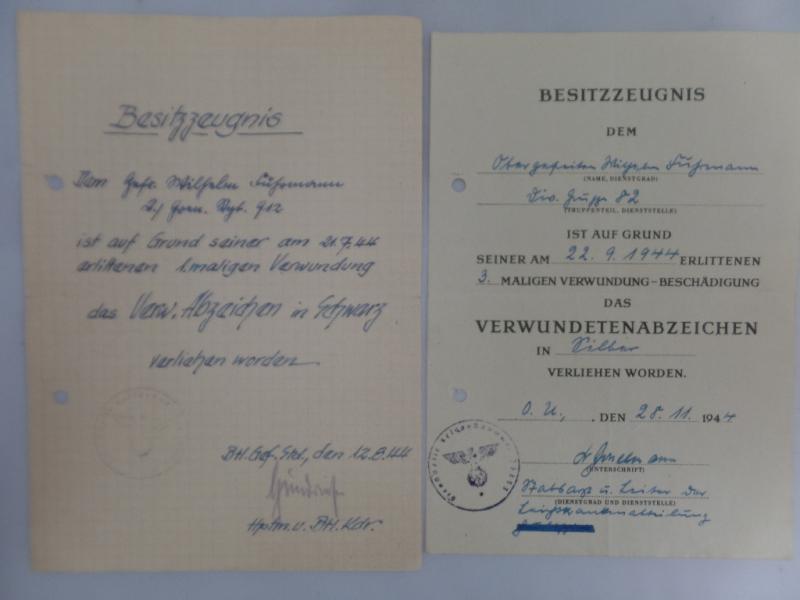 Besitzzeugnis
Dem Gefr. Wilhelm Fuhrmann
2./ Gren. Rgt. 912
ist auf Grund seiner am 21.7.44
erlittenen 1.maligen Verwundung
das Verw. Abzeichen in Schwarz
verliehen worden.
Btl. Gef. Std., den 12.8.44
Hptm. u. Btl. Kdr.
BESITZZEUGNIS
DEM
Obergefreiten Wilhelm Fuhrmann
(NAME, DIENSTGRAD)
Div. Gruppe 82
(TRUPPENTEIL, DIENSTSTELLE)
IST AUF GRUND
SEINER AM 22.9.1944 ERLITTENEN
3. MALIGEN VERWUNDUNG-BESCHÄDIGUNG
DAS
VERWUNDETENABZEICHEN
IN Silber
VERLIEHEN WORDEN.
O.U., . DEN 28.11. 1944
(UNTERSCHRIFT)
Stabsarzt u. Leiter der
(DIENSTGRAD UND DIENSTSTELLE)